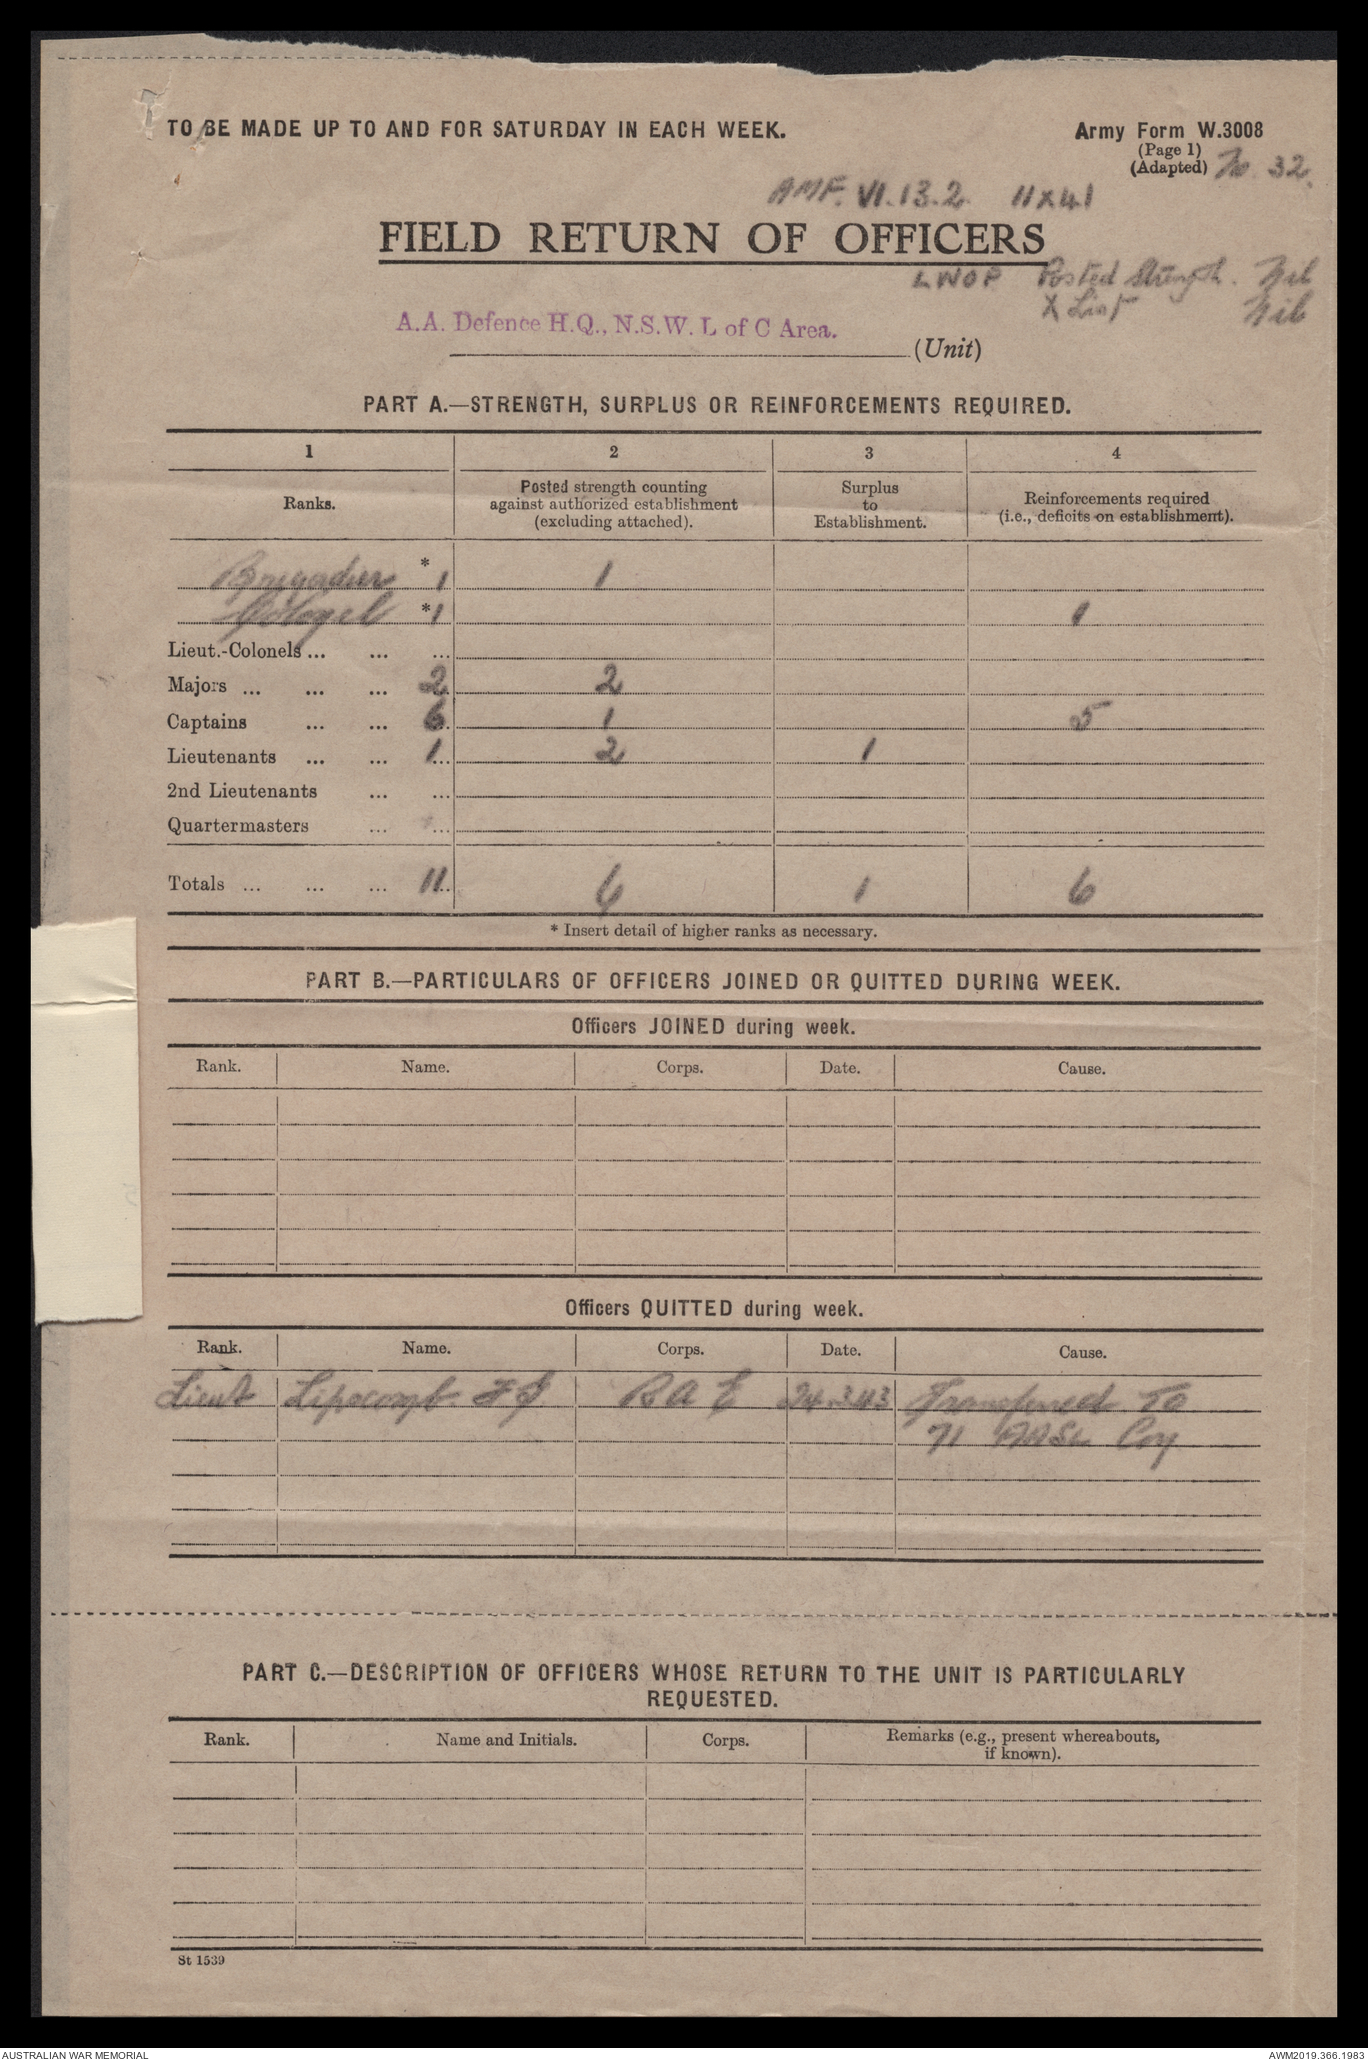 TO BE MADE UP TO AND FOR SATURDAY IN EACH WEEK.
Army Form W.3008
(Page 1)
(Adapted) No. 32.
AMF. VI.13.2. 11X41
FIELD RETURN OF OFFICERS
LWOP Posted Strength. Nil
X List Nil
A.A. Defence H.Q., N.S.W. L of C Area.
(Unit)
PART A.—STRENGTH, SURPLUS OR REINFORCEMENTS REQUIRED.
1 2 3 4
Ranks. Posted strength counting against authorized establishment (excluding attached). Surplus to Establishment. Reinforcements required (i.e., deficits on establishment).
Brigadier * 1 1
Colonel * 1 1
Lieut.-Colonels ... ... ...
Majors ... ... ... 2 2
Captains ... ... 6 1 5
Lieutenants ... ... 1 2 1
2nd Lieutenants ... ...
Quartermasters ... ...
Totals ... ... ... 11 6 1 6
* Insert detail of higher ranks as necessary.
PART B.—PARTICULARS OF OFFICERS JOINED OR QUITTED DURING WEEK.
Officers JOINED during week.
Rank. Name. Corps. Date. Cause.
Officers QUITTED during week.
Rank. Name. Corps. Date. Cause.
Lieut R A E 24.3.43 Transferred To
71 AASL Coy
PART C.—DESCRIPTION OF OFFICERS WHOSE RETURN TO THE UNIT IS PARTICULARLY
REQUESTED.
Rank. Name and Initials. Corps. Remarks (e.g., present whereabouts,
if known).
St 1539
AUSTRALIAN WAR MEMORIAL AWM2019.366.1983